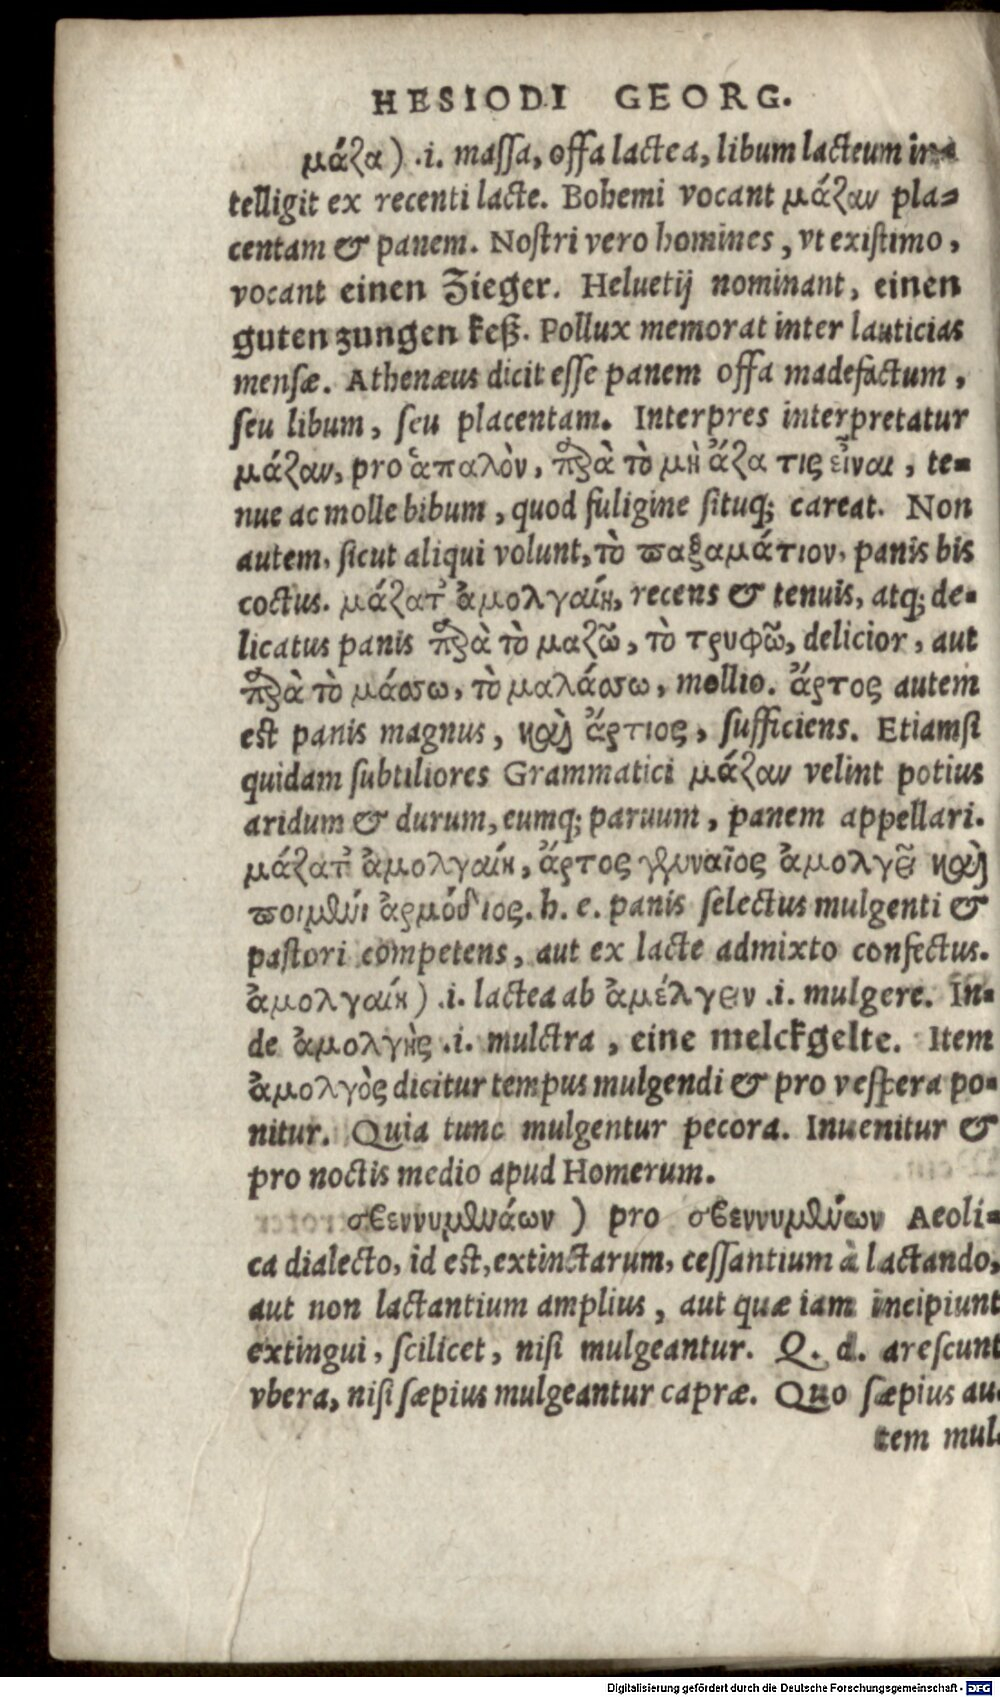 HESIODI GEORG.
μάζα) .i. massa, offa lactea, libum lacteum in-
telligit ex recenti lacte. Bohemi vocant μάζαν pla-
centam & panem. Nostri vero homines, vt existimo,
vocant einen Zieger. Heluetij nominant, einen
guten zungen keß. Pollux memorat inter lauticias
mensæ. Athenæus dicit esse panem offa madefactum,
seu libum, seu placentam. Interpres interpretatur
μάζαν, pro ἁπαλὸν, παρὰ τὸ μὴ ἄζα τις εἶναι, te-
nue ac molle bibum, quod fuligine situq; careat. Non
autem, sicut aliqui volunt, τὸ παξαμάτιον, panis bis
coctus. μάζατ᾽ ἀμολγαίη, recens & tenuis, atq; de-
licatus panis παρὰ τὸ μαζῶ, τὸ τρυφῶ, delicior, aut
παρὰ τὸ μάσσω, τὸ μαλάσσω, mollio. ἄρτος autem
est panis magnus, καὶ ἄρτιος, sufficiens. Etiamsi
quidam subtiliores Grammatici μάζαν velint potius
aridum & durum, eumq; paruum, panem appellari.
μάζατ᾽ ἀμολγαίη, ἄρτος γενναῖος ἀμολγῷ καὶ
ποιμένι ἁρμόδιος. h. e. panis selectus mulgenti &
pastori competens, aut ex lacte admixto confectus.
ἀμολγαίη) .i. lactea ab ἀμέλγειν .i. mulgere. In-
de ἀμολγὴς .i. mulctra, eine melckgelte. Item
ἀμολγὸς dicitur tempus mulgendi & pro vespera po-
nitur. Quia tunc mulgentur pecora. Inuenitur &
pro noctis medio apud Homerum.
σβεννυμενάων) pro σβεννυμένων Aeoli-
ca dialecto, id est, extinctarum, cessantium à lactando,
aut non lactantium amplius, aut quæ iam incipiunt
extingui, scilicet, nisi mulgeantur. Q. d. arescunt
vbera, nisi sæpius mulgeantur capræ. Quo sæpius au
tem mul
Digitalisierung gefördert durch die Deutsche Forschungsgemeinschaft - DFG